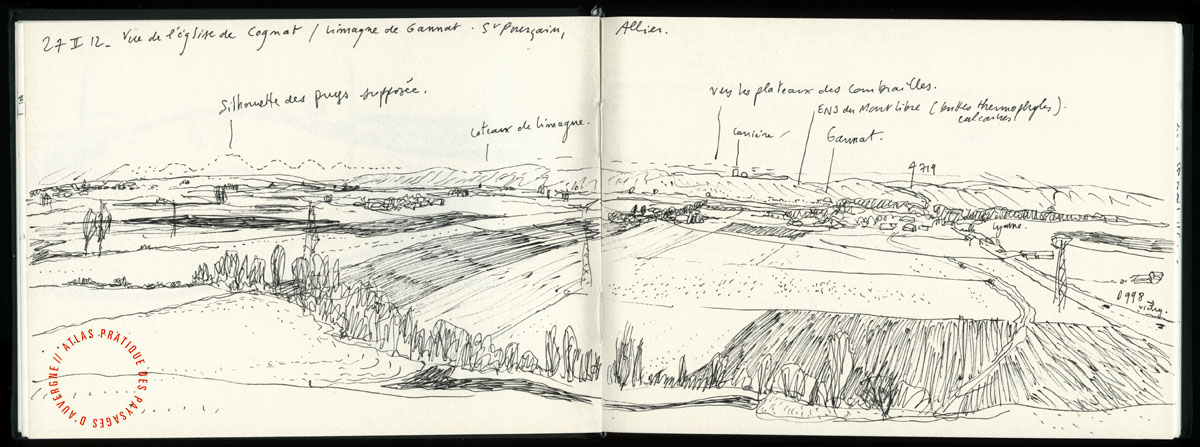 27 II 12 - Vue de l'église de Cognat / Limagne de Gannat. St Pourçain, Allier.
Silhouette des puys supposée.
Coteaux de Limagne.
vers les plateaux des Combrailles.
ENS du Mont Libre (buttes thermophyles).
calcaires
carrière
Gannat.
A 719
D 998
vichy.
// ATLAS PRATIQUE DES PAYSAGES D'AUVERGNE